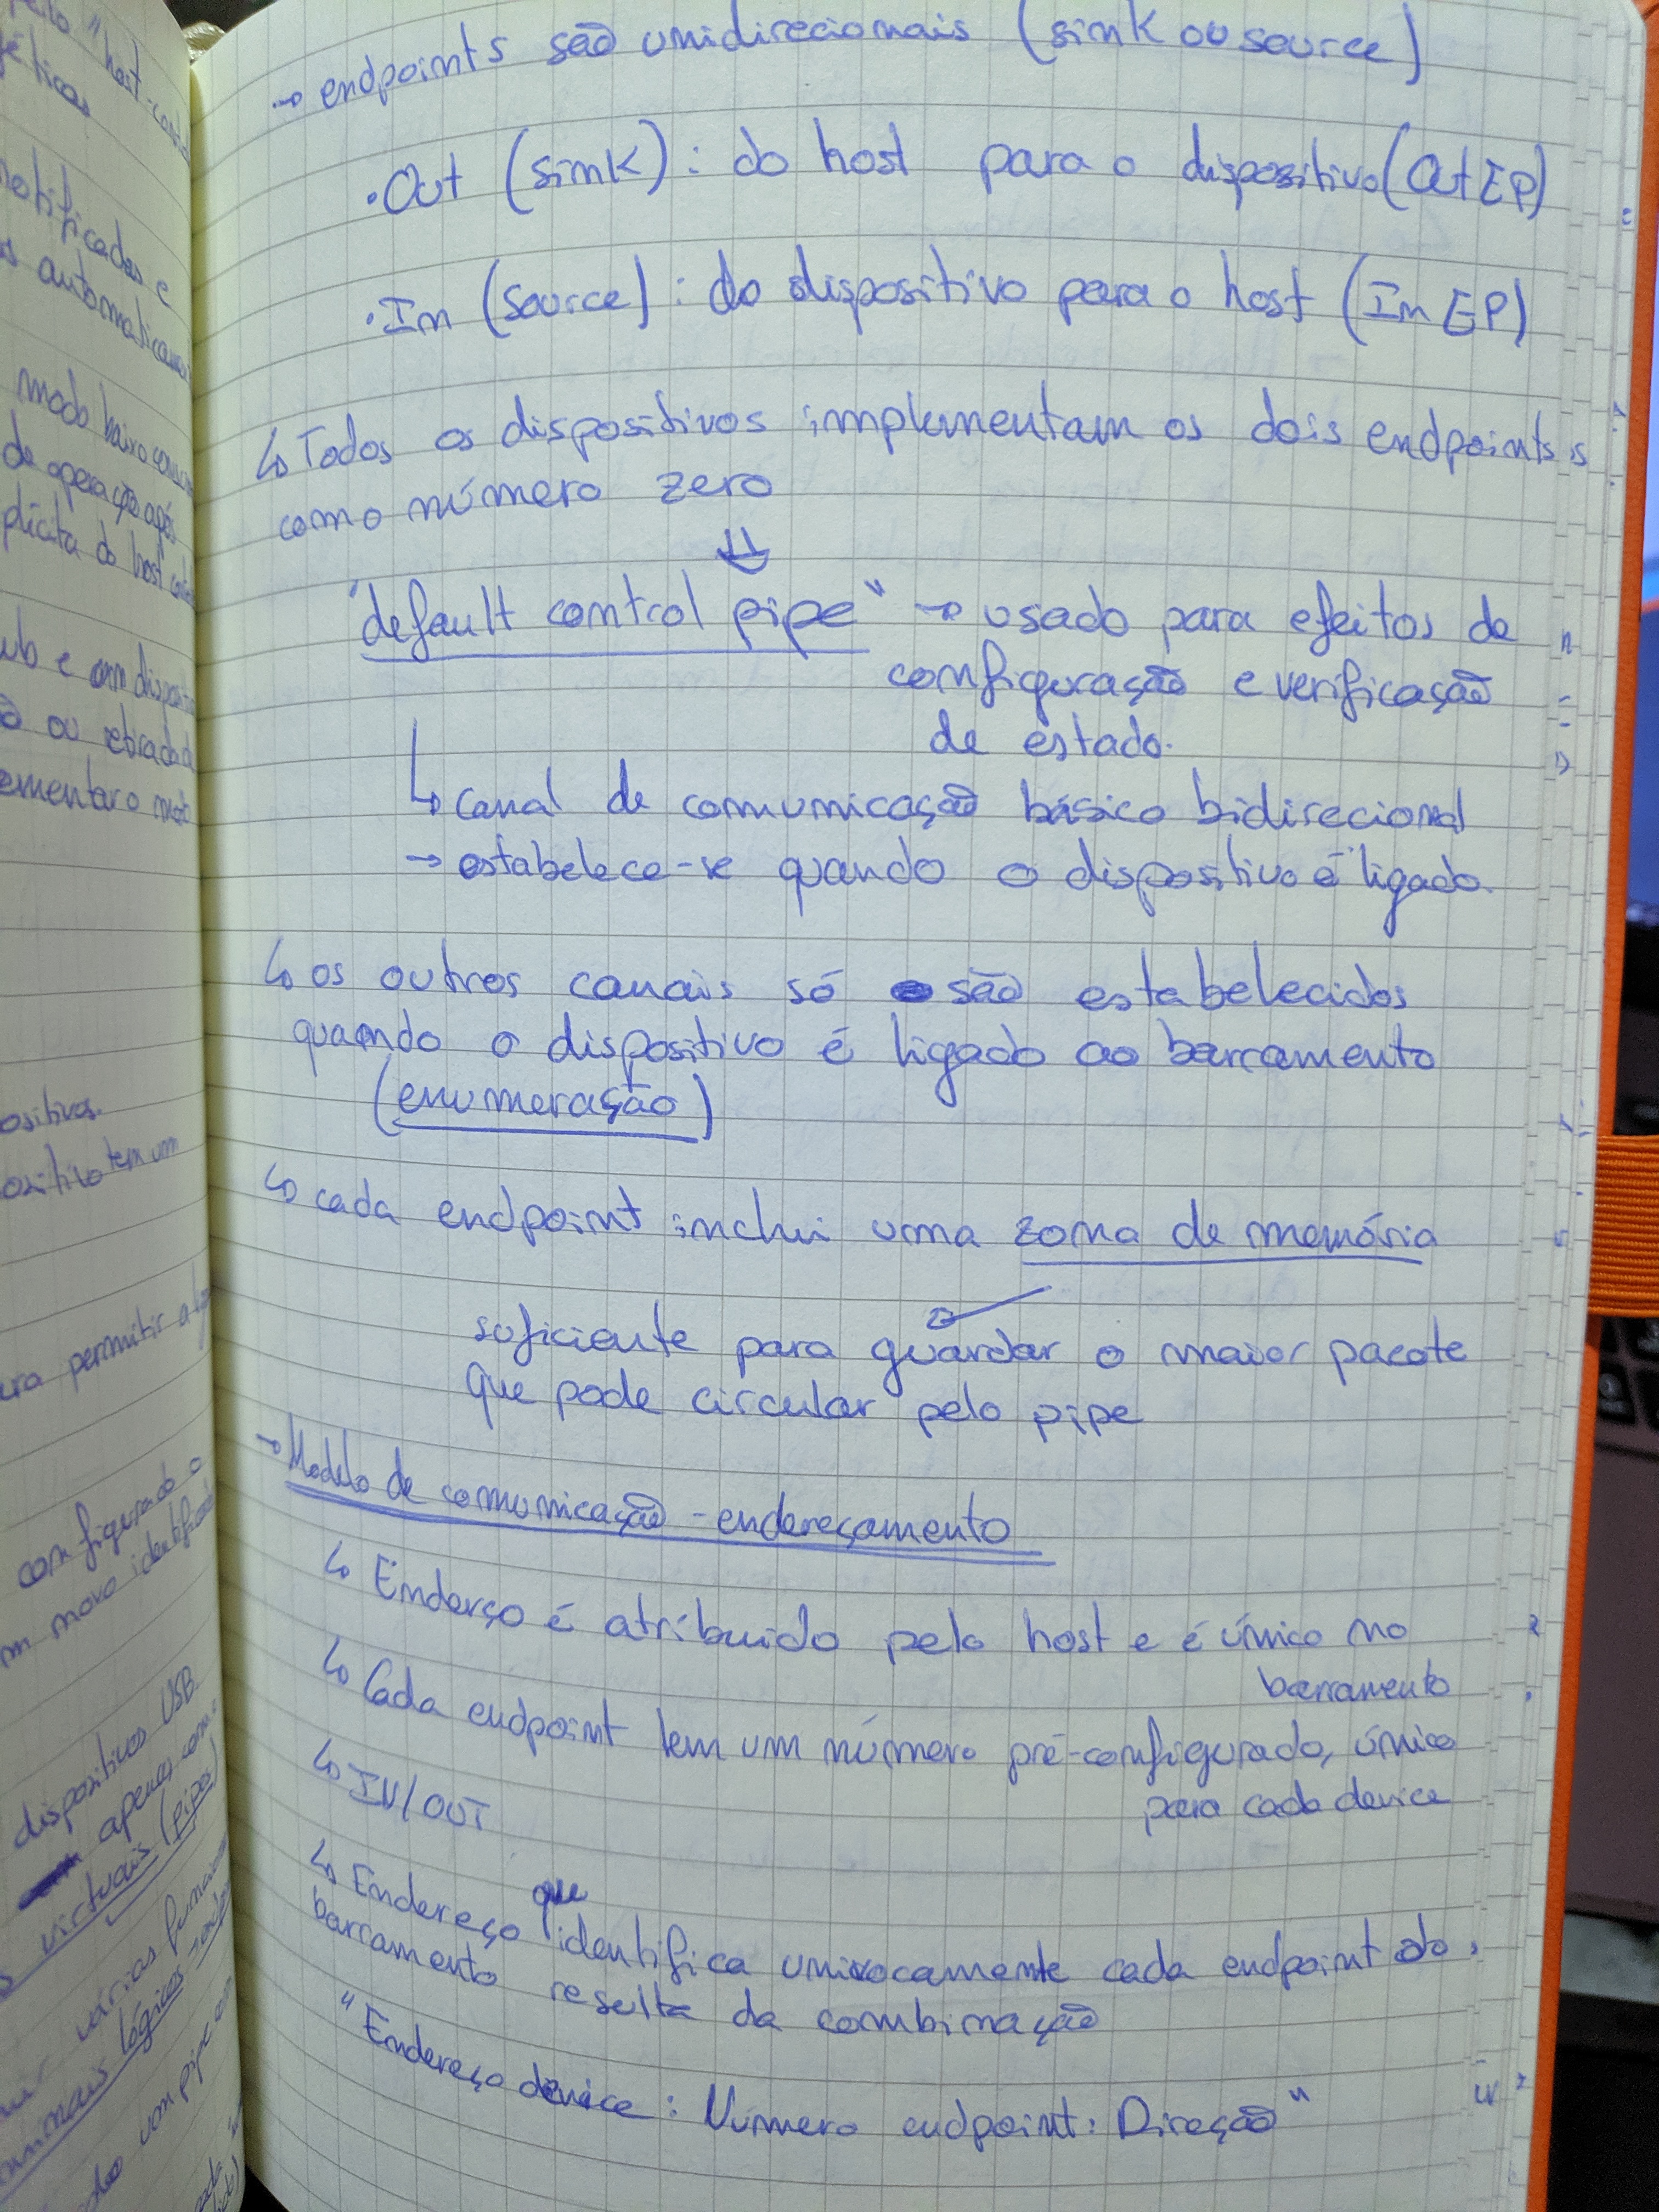 → endpoints são unidirecionais (sink ou source)
• Out (sink): do host para o dispositivo (Out EP)
• In (source): do dispositivo para o host (In EP)
↳ Todos os dispositivos implementam os dois endpoints
como número zero
⇓
"default control pipe" → usado para efeitos de
configuração e verificação
de estado.
↳ canal de comunicação básico bidirecional
→ estabelece-se quando o dispositivo é ligado.
↳ os outros canais só são estabelecidos
quando o dispositivo é ligado ao barramento
(enumeração)
↳ cada endpoint inclui uma zona de memória
suficiente para guardar o maior pacote
que pode circular pelo pipe
→ Modelo de comunicação - endereçamento
↳ Enderço é atribuido pelo host e é único no
barramento
↳ Cada endpoint tem um número pré-configurado, único
para cada device
↳ IN/OUT
↳ Endereço que identifica univocamente cada endpoint do
barramento resulta da combinação
"Endereço device: Número endpoint: Direção"
positivo tem um
para permitir a
configurado o
um novo
dispositivos USB.
apenas
virtuais (pipes)
várias
lógicos
um pipe
notificadas e
automaticamente
modo baixo
de operação após
do host
e um
ou retirado